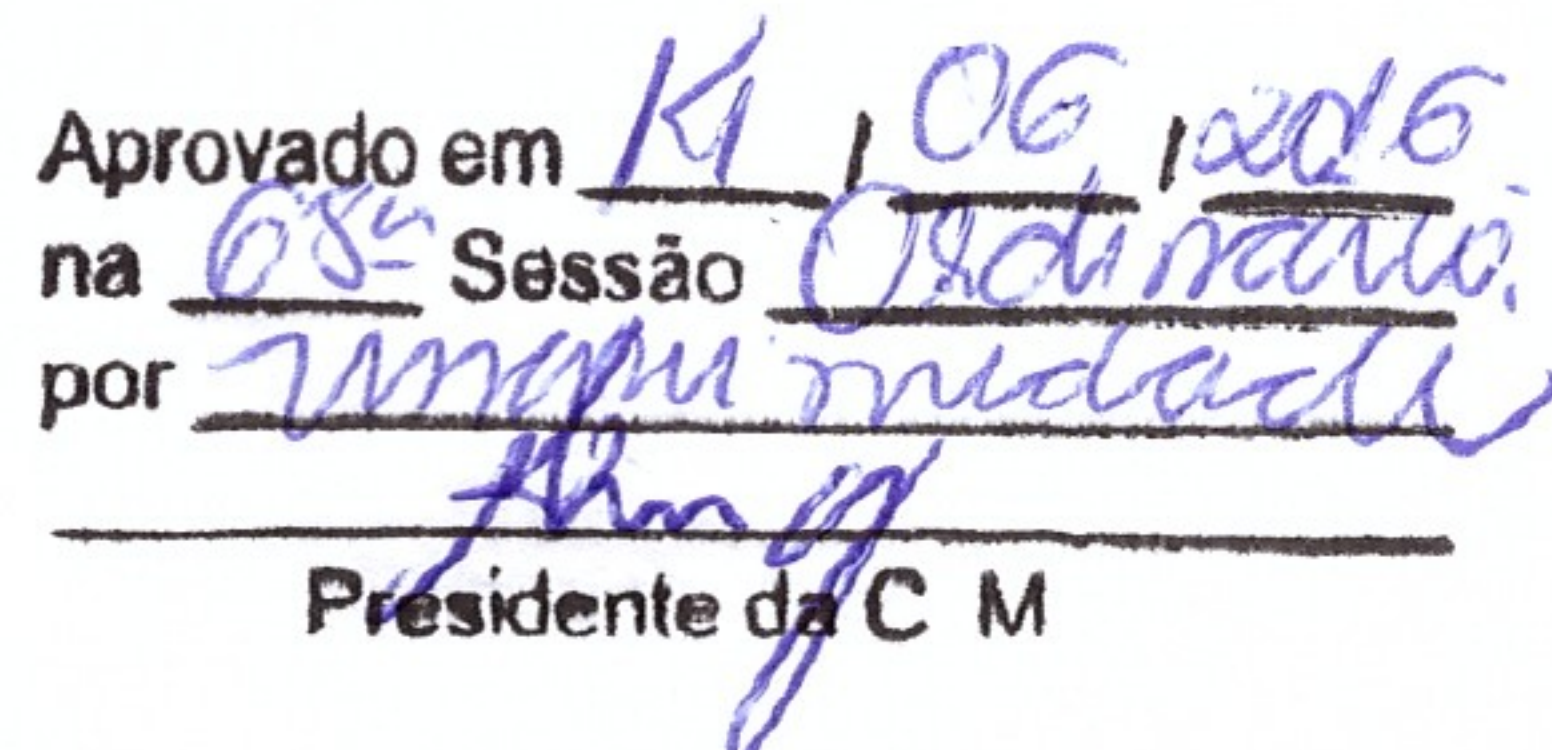 Aprovado em 14 / 06 / 2016
na 65ª Sessão Ordinária.
por unanimidade
Presidente da C M